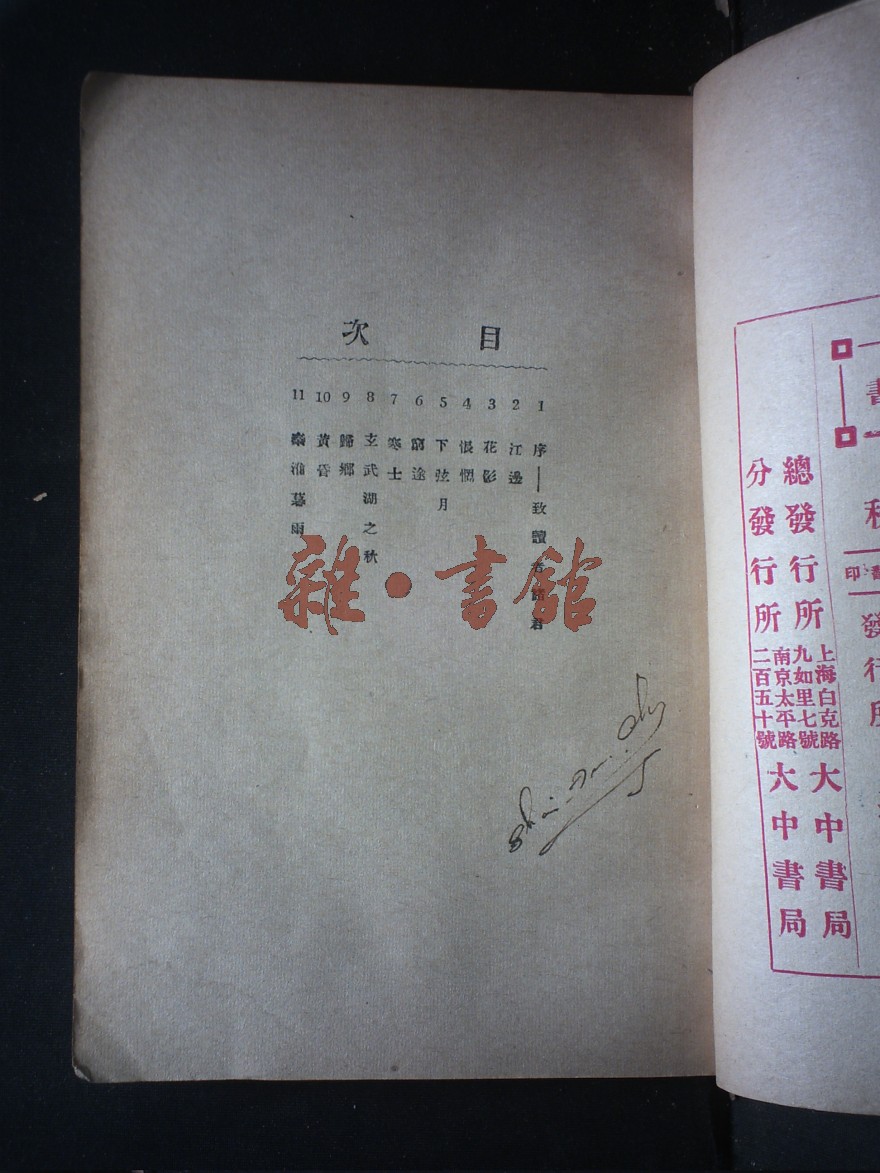 目 次
1 序——致讀者諸君
2 江邊
3 花影
4 悵惘
5 下弦月
6 窮途
7 寒士
8 玄武湖之秋
9 歸鄉
10 黃昏
11 秦淮暮雨
雜·書館
書
印
發行所
總發行所 上海白克路九如里七號 大中書局
分發行所 南京太平路二百五十號 大中書局